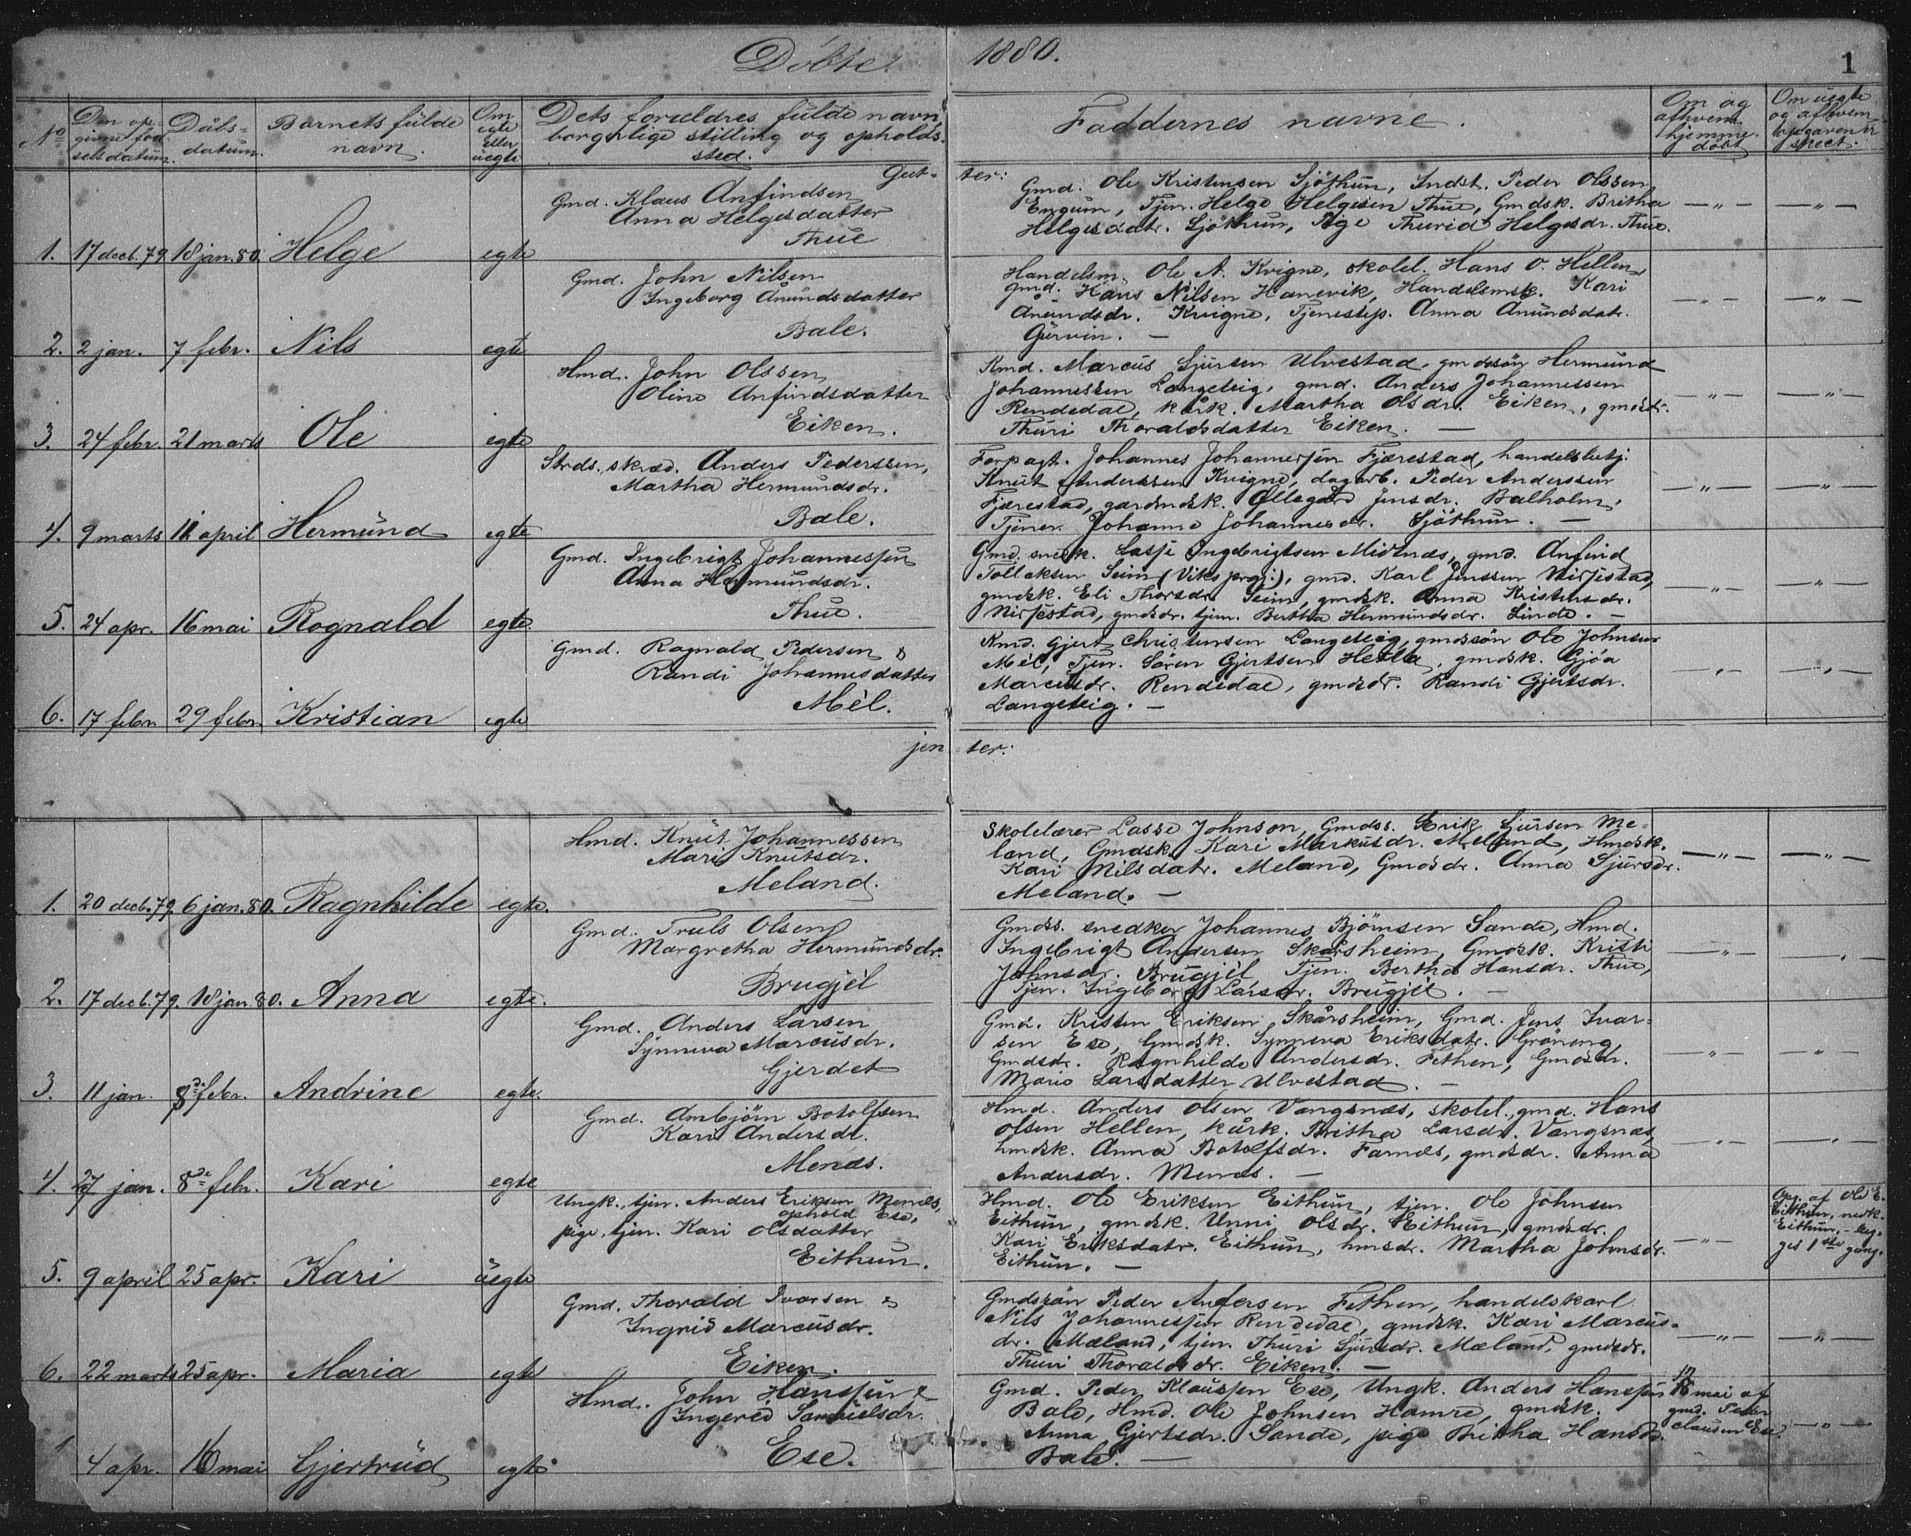 Döbte 1880. 1
No
Den op-
givne föd-
selsdatum.
Dåbs-
datum.
Barnets fulde
navn.
Om
egte
eller
uegte
Dets foreldres fulde navn,
borgerlige stilling og opholds-
sted.
Faddernes navne.
Om og
af hvem
hjemme-
döbt
Om uegte
og af hvem
opgaven er
skeet.
Gut- ter:
1. 17 decb. 79 18 jan. 80. Helge egte
Gmd. Klaus Anfindsen
Anna Helgesdatter
Thue
Gmd. Ole Kristensen Sjöthun, Indst. Peder Olssen
Engum, Tjen. Helge Helgesen Thue, Gmdsk. Britha
Helgesdatr. Sjöthun, Pige Thurid Helgesdr. Thue.
— " — — " —
2. 2 jan. 7 febr. Nils egte
Gmd. John Nilsen
Ingeborg Anundsdatter
Bale.
Handelsm. Ole A. Kvigne, skolel. Hans O. Hellen,
gmd. Hans Nilsen Hanevik, Handelsmsk. Kari
Anundsdr. Kvigne, Tjenestep. Anna Anundsdatr.
Gurvin. —
— " — — " —
3. 24 febr. 21 marts Ole egte
Hmd. John Olssen
Oline Anfindsdatter
Eiken.
Kmd. Marcus Sjursen Ulvestad, gmdssön Hermund
Johannessen Langeteig, gmd. Anders Johannessen
Rendedal, kårk. Martha Olsdr. Eiken, gmdsdr.
Thuri Thoraldsdatter Eiken. —
— " — — " —
4. 9 marts 11 april Hermund egte
Strds. skræd. Anders Pederssen,
Martha Hermundsdr.
Bale.
Forpagt. Johannes Johannesjen Fjærestad, handelsbetj.
Knut Anderssen Kvigne, dagarb. Peder Anderssen
Fjærestad, gardmdsk. Ollegård Jensdr. Balholm,
Tjener Johanne Johannesdr. Sjöthun. —
— " — — " —
5. 24 apr. 16 mai Rognald egte.
Gmd. Ingebrigt Johannesjen
Anna Hermundsdr.
Thue
Gmd. snedk. Lasje Ingebrigtsen Midlnæs, gmd. Anfind
Tollaksen Seim (Viks prgj.), gmd. Karl Jenssen Nissestad,
gmdsk. Eli Thorsdr. Seim, gmdsk. Anna Kristensdr.
Nissestad, gmdsdr. tjen. Bertha Hermundsdr. Linde. —
— " — — " —
6. 17 febr. 29 febr. Kristian egte
Gmd. Ragnald Pedersen &
Randi Johannesdatter
Mèl.
Kmd. Gjert Christensen Langeteig, gmdssön Ole Johnsen
Mèl, Tjen. Sören Gjertsen Hetla, gmdsk. Gjöa
Marcusdr. Rendedal, gmdsdr. Randi Gjertsdr.
Langeteig. —
— " — — " —
jen- ter:
1. 20 decb. 79. 6 jan. 80. Ragnhilde egte.
Hmd. Knut Johannessen
Mari Knutsdr.
Meland.
Skolelærer Lasse Johnson, Gmdss. Erik Sjursen Me-
land, Gmdsk. Kari Markusdr. Meland, Hmdsk.
Kari Nilsdatr. Meland, Gmdsdr. Anna Sjursdr.
Meland. —
— " — — " —
2. 17 decb. 79. 18 jan. 80. Anna egte.
Gmd. Truls Olsen
Margretha Hermundsdr.
Brugjèl
Gmdss. snedker Johannes Bjørnsen Sande, Hmd.
Ingebrigt Andersen Skårsheim, Gmdsk. Kristi
Johnsdr. Brugjèl Tjen. Bertha Hansdr. Thue,
Tjen. Ingeborg Larsdr. Brugjèl. —
— " — — " —
3. 11 jan. 8de febr. Andrine egte.
Gmd. Anders Larsen
Synneva Marcusdr.
Gjerdet
Gmd. Kristen Eriksen Skårsheim, Gmd. Jens Ivar-
sen Ese, Gmdsk. Synneva Eriksdatr. Gröneng,
Gmdsdr. Ragnhilde Andersdr. Fethen, Gmdsdr.
Marie Larsdatter Ulvestad. —
— " — — " —
4. 27 jan. 8de febr. Kari egte
Gmd. Ambjörn Botolfsen
Kari Andersdt.
Menæs.
Hmd. Anders Olsen Vangsnæs, skolel., gmd. Hans
Olsen Hellen, kårk. Britha Larsdr. Vangsnæs,
hmdsk. Anna Botolfsdr. Farnæs, gmdsdr. Anna
Andersdr. Menæs. —
— " — — " —
5. 9 april 25 apr. Kari uegte
Ungk., tjen. Anders Eriksen Menæs,
ophold Ese,
pige, tjen. Kari Olsdatter
Eithun.
Hmd. Ole Eriksen Eithun, tjen. Ole Johnsen
Eithun, gmdsk. Unni Olsdr. Eithun, gmdsdr.
Kari Eriksdatr. Eithun, hmsdr. Martha Johnsdr.
Eithun. —
— " —
Opg. af Ole E.
Eithun, nedk.
Eithun, – beg-
ges 1ste gang.
6. 22 marts 25 apr. Maria egte
Gmd. Thorald Ivarsen &
Ingrid Marcusdr.
Eiken.
Gmdssön Peder Andersen Fethen, handelskarl
Nils Johannesjen Rendedal, gmdsk. Kari Marcus-
dr. Mæland, tjen. Thuri Sjursdr. Mæland, gmdsdr.
Thuri Thoraldsdr. Eiken. —
— " — — " —
4 apr. 16 mai Gjertrud egte
Hmd. John Hansjen &
Ingered Samuelsdr.
Ese.
Gmd. Peder Klausjen Ese, Ungk. Anders Hansjen
Bale, Hmd. Ole Johnsen Hamre, gmdsk.
Anna Gjertsdr. Sande, pige Britha Hansdr.
Bale. —
mai af
gmd. Peder
Clausen Ese.
— " —